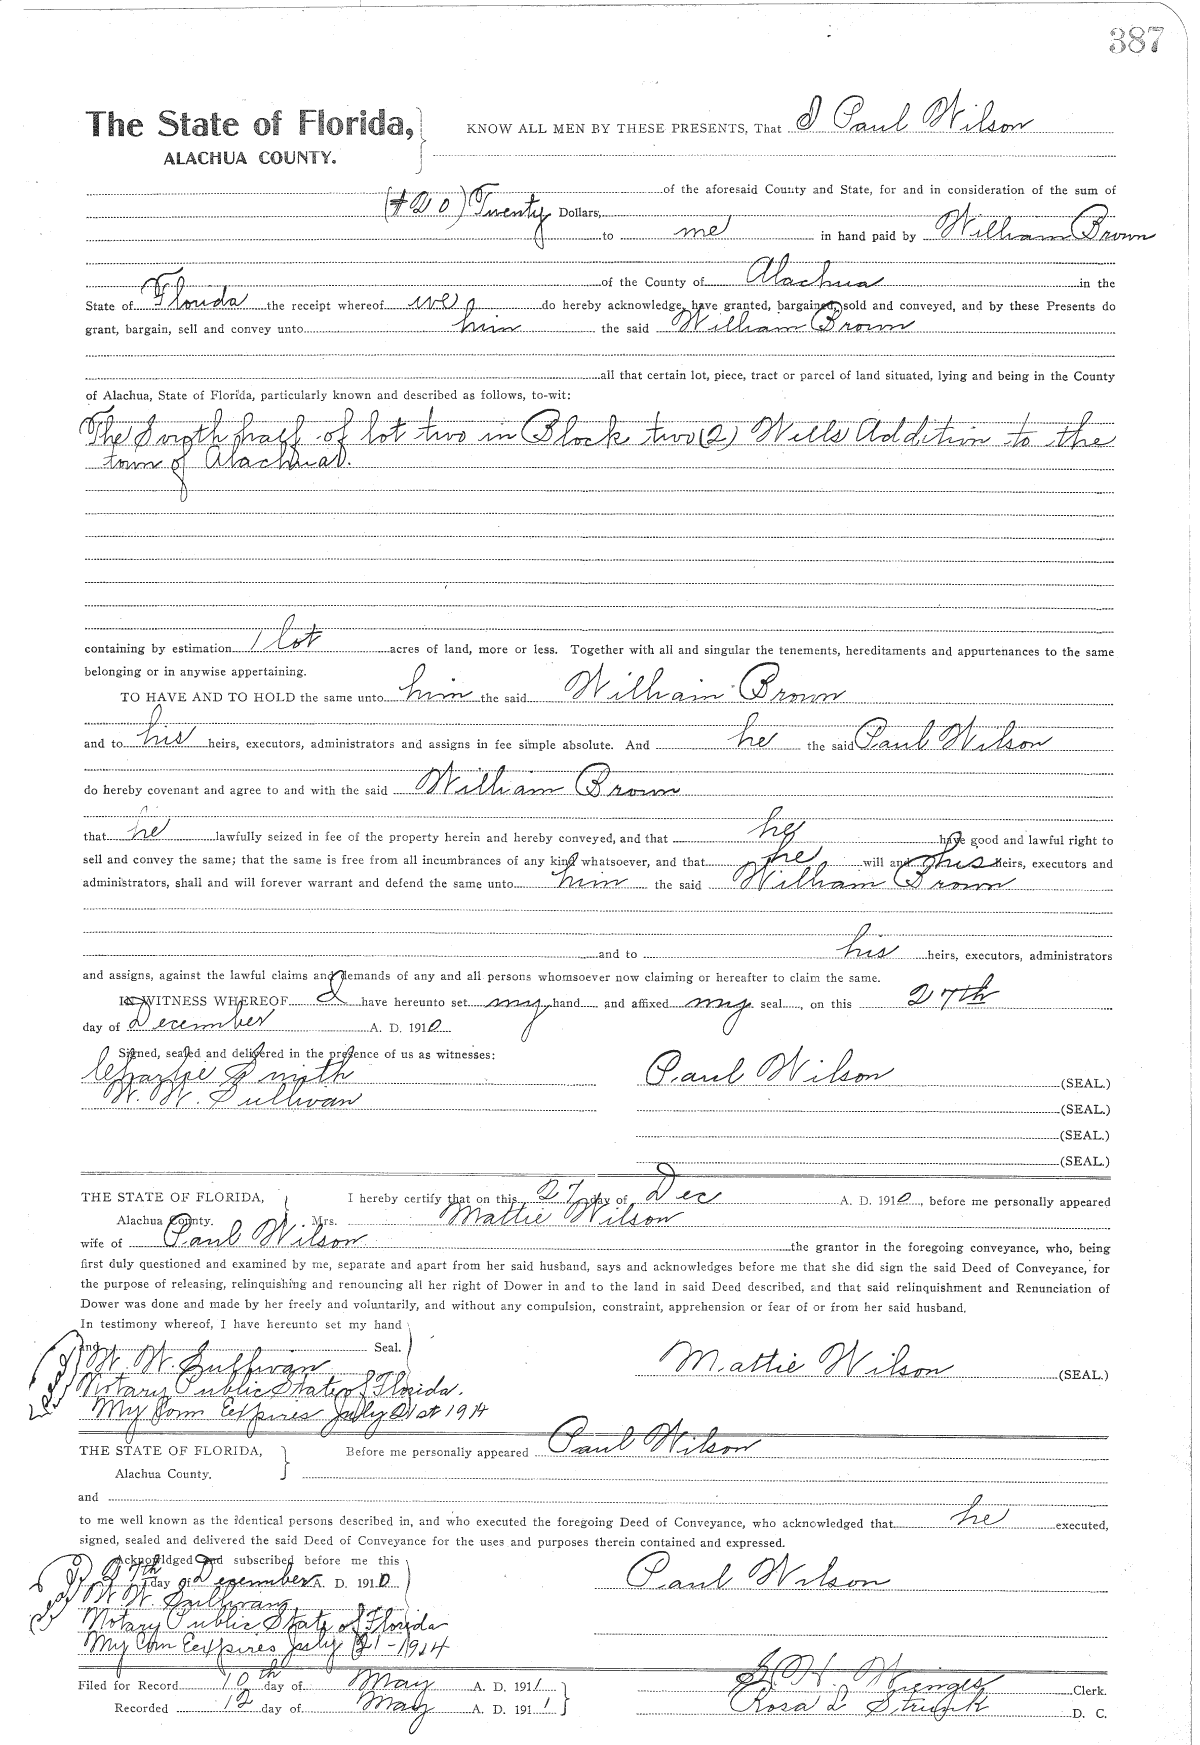 387
The State of Florida, KNOW ALL MEN BY THESE PRESENTS, That I Paul Wilson
ALACHUA COUNTY.
of the aforesaid County and State, for and in consideration of the sum of
($20) Twenty Dollars,
to me in hand paid by William Brown
of the County of Alachua in the
State of Florida the receipt whereof we do hereby acknowledge, have granted, bargained, sold and conveyed, and by these Presents do
grant, bargain, sell and convey unto him the said William Brown
all that certain lot, piece, tract or parcel of land situated, lying and being in the County
of Alachua, State of Florida, particularly known and described as follows, to-wit:
The half of lot two in Block two (2) Wills Addition to the
town of Alachua.
containing by estimation 1 lot acres of land, more or less. Together with all and singular the tenements, hereditaments and appurtenances to the same
belonging or in anywise appertaining.
TO HAVE AND TO HOLD the same unto him the said William Brown
and to his heirs, executors, administrators and assigns in fee simple absolute. And he the said Paul Wilson
do hereby covenant and agree to and with the said William Brown
that he lawfully seized in fee of the property herein and hereby conveyed, and that he have good and lawful right to
sell and convey the same; that the same is free from all incumbrances of any kind whatsoever, and that he will and his heirs, executors and
administrators, shall and will forever warrant and defend the same unto him the said William Brown
and to his heirs, executors, administrators
and assigns, against the lawful claims and demands of any and all persons whomsoever now claiming or hereafter to claim the same.
IN WITNESS WHEREOF I have hereunto set my hand and affixed my seal, on this 27th
day of December A. D. 1910
Signed, sealed and delivered in the presence of us as witnesses:
Charlie Smith Paul Wilson (SEAL.)
W. W. Sullivan (SEAL.)
(SEAL.)
(SEAL.)
THE STATE OF FLORIDA, I hereby certify that on this 27 day of Dec A. D. 1910, before me personally appeared
Alachua County. Mrs. Mattie Wilson
wife of Paul Wilson the grantor in the foregoing conveyance, who, being
first duly questioned and examined by me, separate and apart from her said husband, says and acknowledges before me that she did sign the said Deed of Conveyance, for
the purpose of releasing, relinquishing and renouncing all her right of Dower in and to the land in said Deed described, and that said relinquishment and Renunciation of
Dower was done and made by her freely and voluntarily, and without any compulsion, constraint, apprehension or fear of or from her said husband.
In testimony whereof, I have hereunto set my hand
and Seal.
(Seal) W. W. Sullivan Mattie Wilson (SEAL.)
Notary Public State of Florida.
My Com Expires July 21st 1914
THE STATE OF FLORIDA, Before me personally appeared Paul Wilson
Alachua County.
and
to me well known as the identical persons described in, and who executed the foregoing Deed of Conveyance, who acknowledged that he executed,
signed, sealed and delivered the said Deed of Conveyance for the uses and purposes therein contained and expressed.
Acknowldged and subscribed before me this
27th day of December A. D. 1910 Paul Wilson
(Seal) W W Sullivan
Notary Public State of Florida
My Com Expires July 21-1914
Filed for Record 10th day of May A. D. 1911 S. H. Wienges Clerk.
Recorded 12 day of May A. D. 1911 Rosa L D. C.